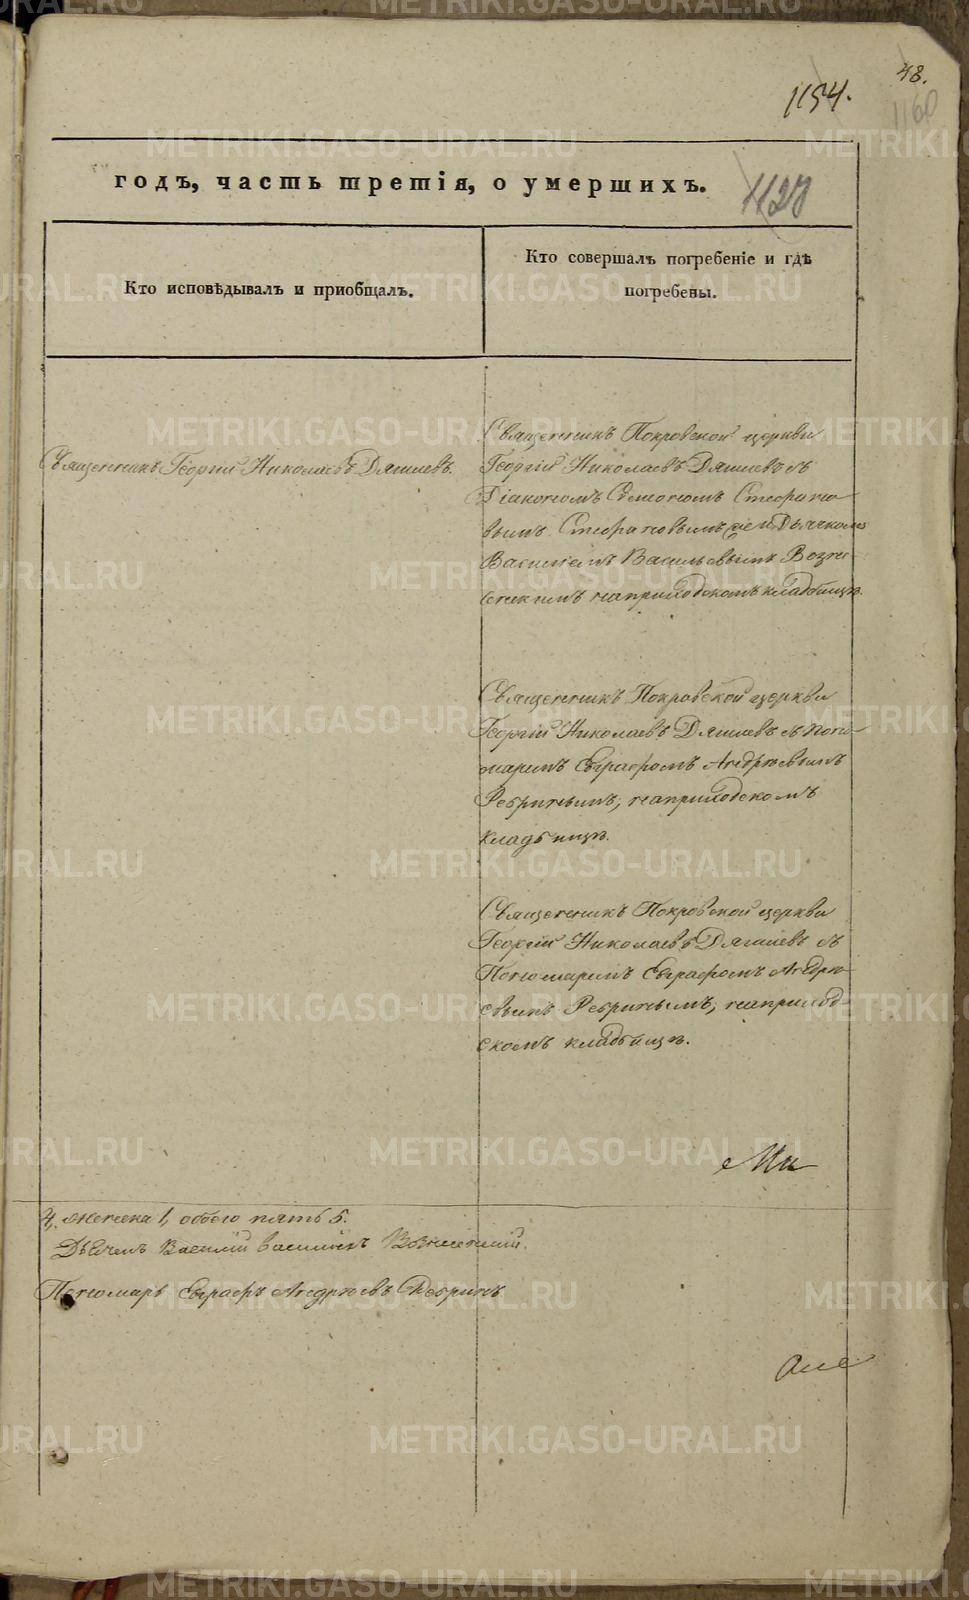 48.
1154.
1160
1127
годъ, часть третія, о умершихъ.
Кто исповѣдывалъ и приобщалъ.
Кто совершалъ погребеніе и гдѣ
погребены.
Священникъ Георгій Николаевъ Дягилевъ.
Священникъ Покровской церкви
Георгій Николаевъ Дягилевъ съ
Діакономъ Симономъ Стефано
вымъ Стефановымъ же и Дьячкомъ
Василіемъ Васильевымъ Возне
сенскимъ на приходскомъ кладбищѣ.
Священникъ Покровской церкви
Георгій Николаевъ Дягилевъ съ поно
маремъ Евграфомъ Андреевымъ
Ребринымъ, на приходскомъ
кладбищѣ.
Священникъ Покровской церкви
Георгій Николаевъ Дягилевъ съ
Пономаремъ Евграфомъ Андре
евымъ Ребринымъ, на приход
скомъ кладбищѣ.
Ми
4, женска 1, обоего пять 5.
Дьячекъ Василій Васильевъ Вознесенскій.
Пономарь Евграфъ Андреевъ Ребринъ
Але
METRIKI.GASO-URAL.RU